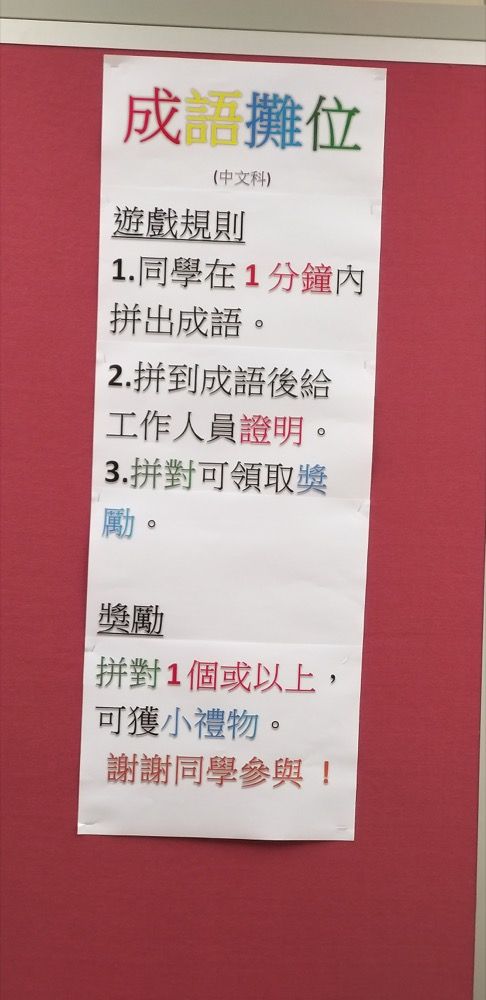 成語攤位
(中文科)
遊戲規則
1.同學在 1 分鐘內
拼出成語。
2.拼到成語後給
工作人員證明。
3.拼對可領取獎
勵。
獎勵
拼對 1 個或以上，
可獲小禮物。
謝謝同學參與！